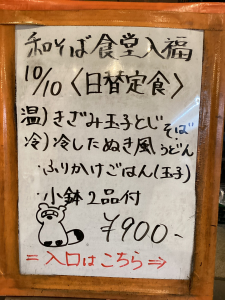 和そば食堂入福
10/10〈日替定食〉
温)きざみ玉子とじ そば
冷)冷したぬき風 うどん
・ふりかけごはん(玉子)
・小鉢2品付
¥900-
=入口はこちら⇒